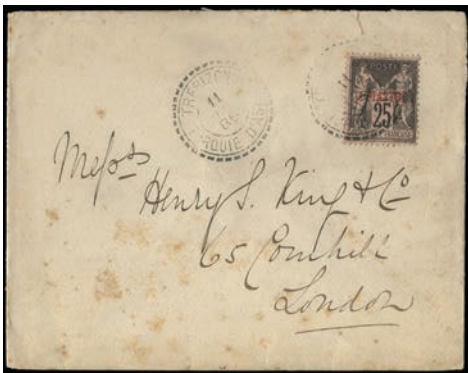 TREBIZONDE
11
TURQUIE D'ASIE
POSTE
25
FRANÇAISE
Messrs
Henry S. King & Co
65 Cornhill
London